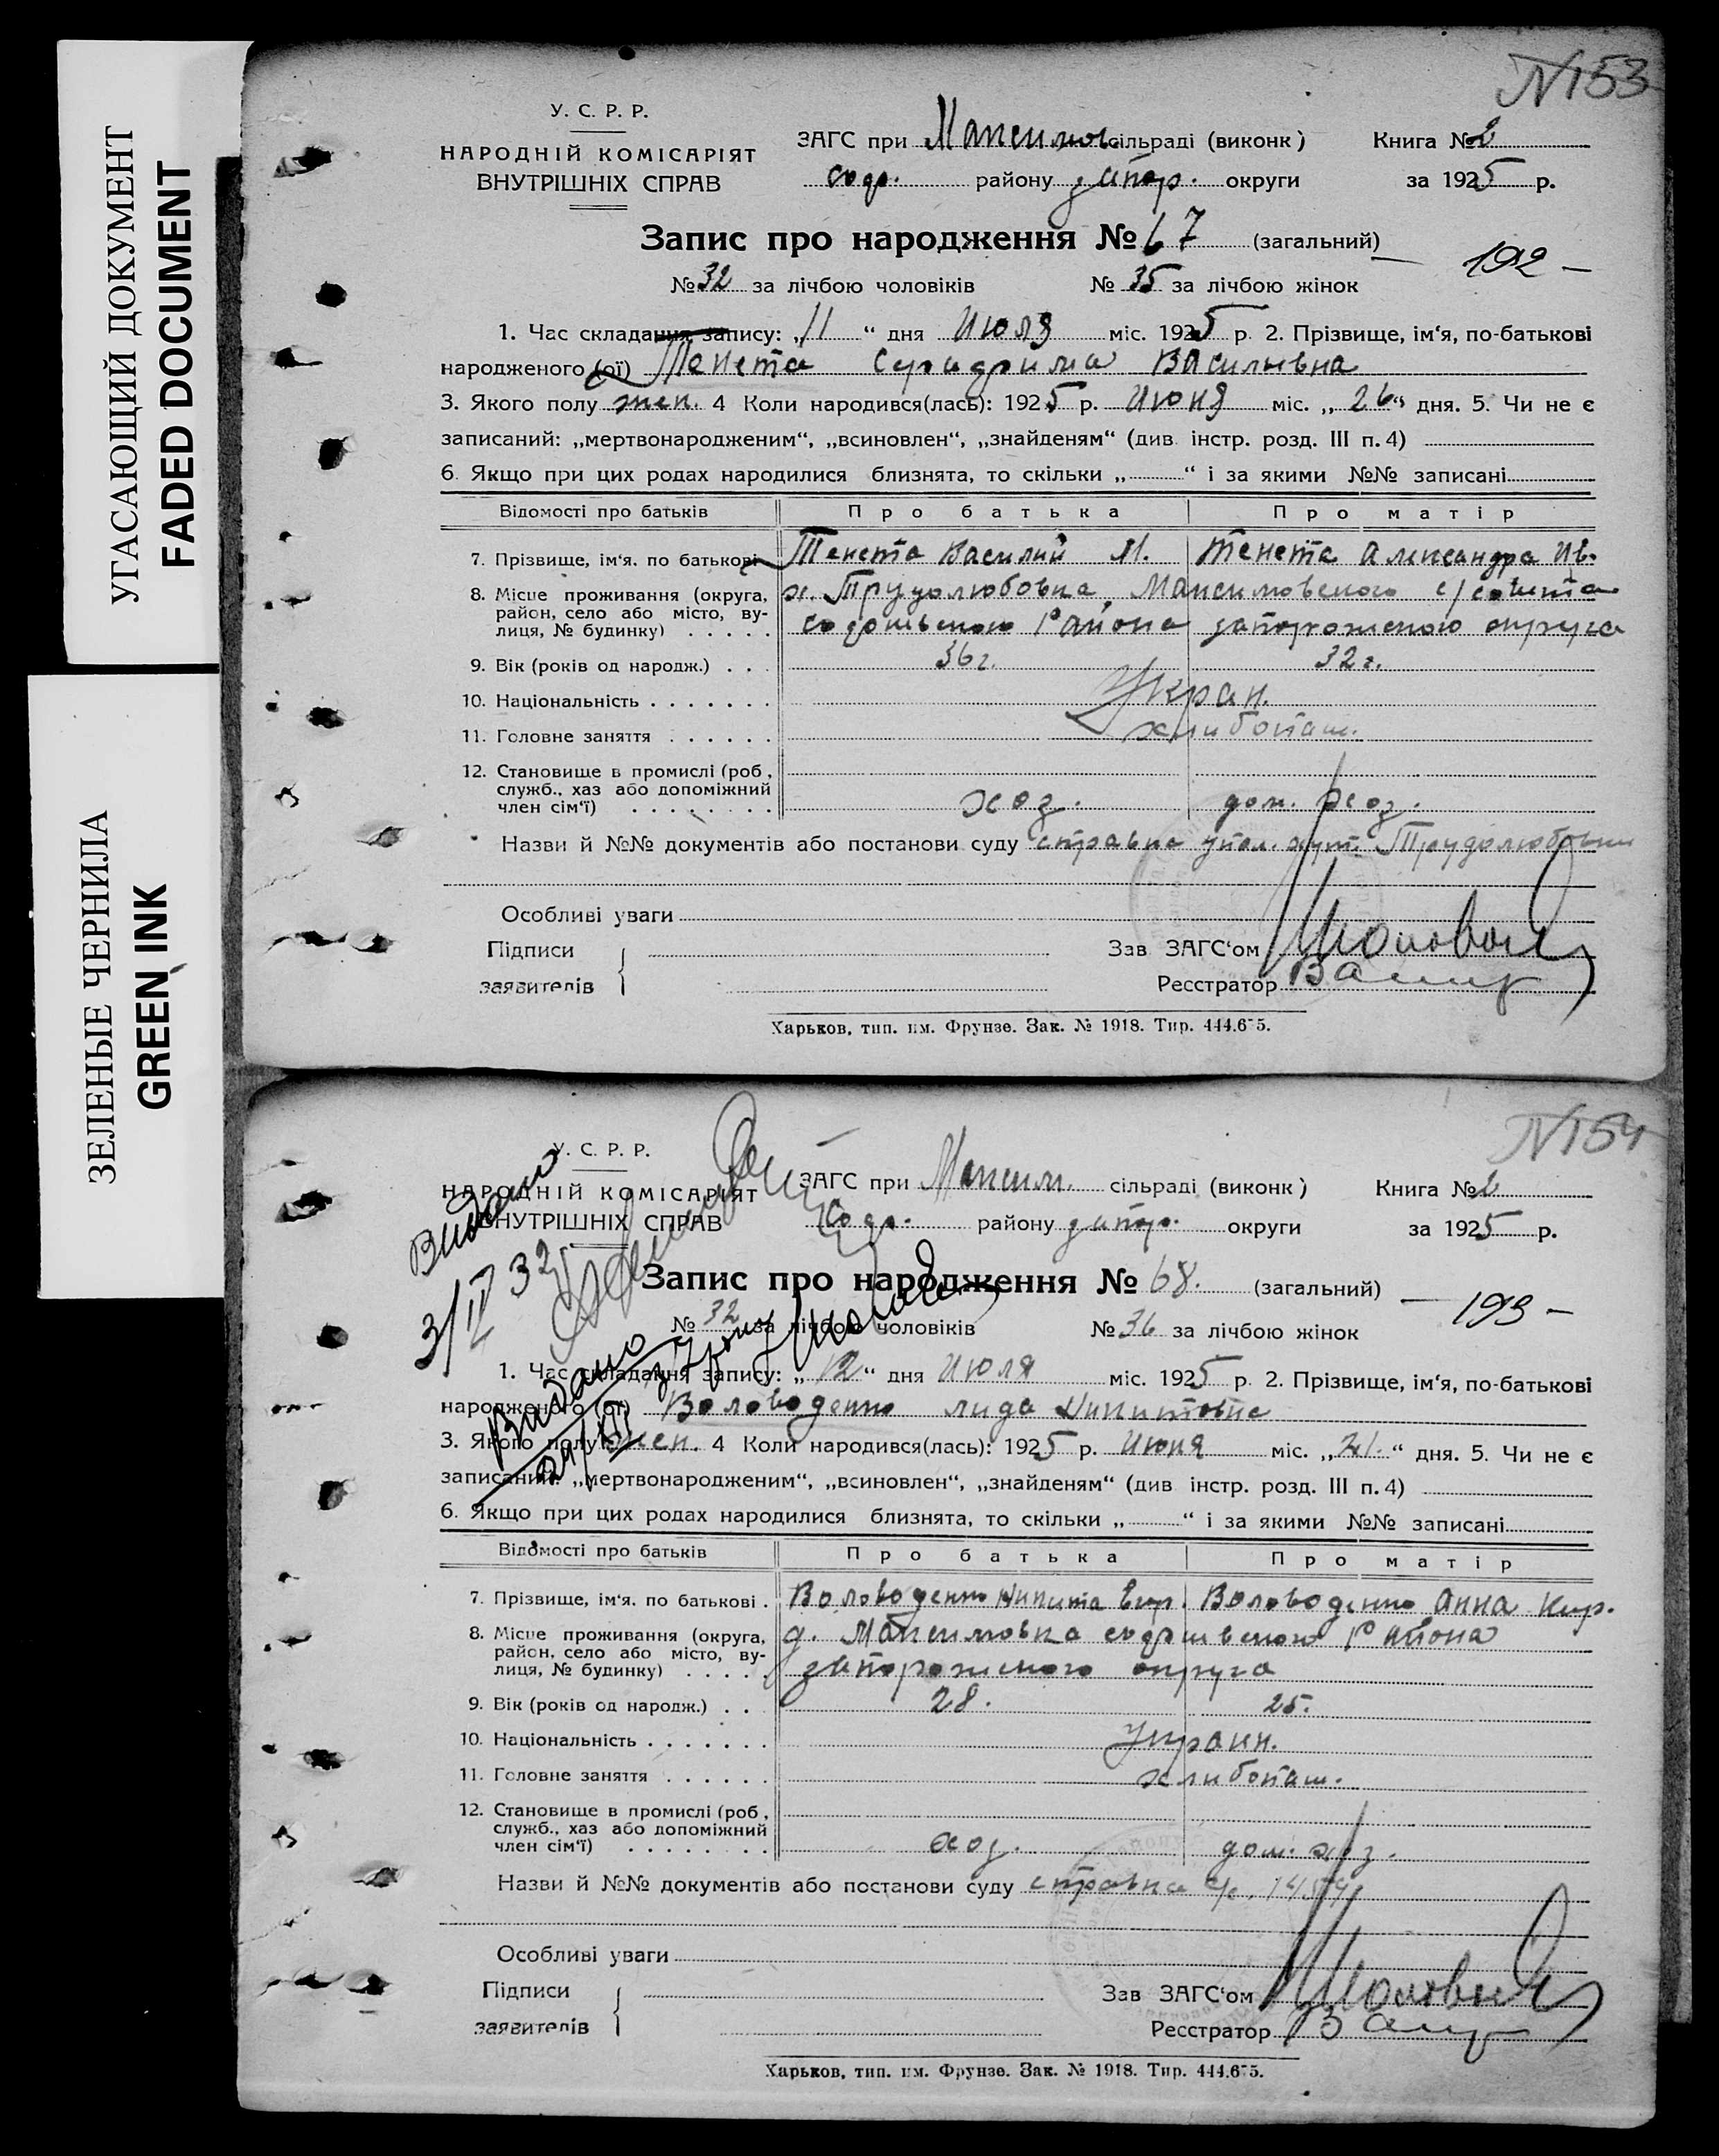 УГАСАЮЩИЙ ДОКУМЕНТ
FADED DOCUMENT
ЗЕЛЕНЫЕ ЧЕРНИЛА
GREEN INK
N153
У. С. Р. Р.
НАРОДНІЙ КОМІСАРІЯТ
ВНУТРІШНІХ СПРАВ
ЗАГС при Максимов. сільраді (виконк) Книга № 2
району запор. округи за 1925 р.
Запис про народження № 67 (загальний)
— 192 —
№ 32 за лічбою чоловіків № 35 за лічбою жінок
1. Час складання запису: „11“ дня Июля міс. 1925 р. 2. Прізвище, ім‘я, по-батькові
народженого (ої) Тенета Серафима Васильевна
3. Якого полу жен. 4 Коли народився(лась): 1925 р. Июня міс. „26“ дня. 5. Чи не є
записаний: „мертвонародженим“, „всиновлен“, „знайденям“ (див. інстр. розд. III п. 4)
6. Якщо при цих родах народилися близнята, то скільки „ “ і за якими №№ записані
Відомості про батьків Про батька Про матір
7. Прізвище, ім‘я. по батькові Тенета Василий И. Тенета Александра Ив.
8. Місце проживання (округа, район, село або місто, вулиця, № будинку) х. Трудолюбовка Максимовского с/совета
района запорожского округа
9. Вік (років од народж.) 36 г. 32 г.
10. Національність Укран.
11. Головне заняття хлибопаш.
12. Становище в промислі (роб., служб., хаз або допоміжний член сім‘ї) хоз. дом. хоз.
Назви й №№ документів або постанови суду справка упол. хут. Трудолюбовки
Особливі уваги
Підписи
заявителів
Зав ЗАГС‘ом
Реєстратор
Харьков, тип. им. Фрунзе. Зак. № 1918. Тир. 444.675.
N154
У. С. Р. Р.
НАРОДНІЙ КОМІСАРІЯТ
ВНУТРІШНІХ СПРАВ
Видано
3/II 32
ЗАГС при Максим. сільраді (виконк) Книга № 2
району запор. округи за 1925 р.
Запис про народження № 68. (загальний)
— 193 —
№ 32 за лічбою чоловіків № 36 за лічбою жінок
Видано
1. Час складання запису: „12“ дня Июля міс. 1925 р. 2. Прізвище, ім‘я, по-батькові
народженого (ої) Воловоденко Лида Никитовна
3. Якого полу жен. 4 Коли народився(лась): 1925 р. Июня міс. „21.“ дня. 5. Чи не є
записаний: „мертвонародженим“, „всиновлен“, „знайденям“ (див. інстр. розд. III п. 4)
6. Якщо при цих родах народилися близнята, то скільки „ “ і за якими №№ записані
Відомості про батьків Про батька Про матір
7. Прізвище, ім‘я. по батькові Воловоденко Никита Воловоденко Анна Кир.
8. Місце проживання (округа, район, село або місто, вулиця, № будинку) д. Максимовка района
запорожского округа
9. Вік (років од народж.) 28. 25.
10. Національність Украин.
11. Головне заняття хлибопаш.
12. Становище в промислі (роб., служб., хаз або допоміжний член сім‘ї) хоз. дом. хоз.
Назви й №№ документів або постанови суду справка с/с.
Особливі уваги
Підписи
заявителів
Зав ЗАГС‘ом
Реєстратор
Харьков, тип. им. Фрунзе. Зак. № 1918. Тир. 444.675.